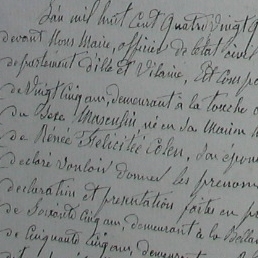 L'an mil huit cent quatre vingt q
devant Nous Maire, officier de l'état civil
département d'Ille et Vilaine, est comp
de vingt cinq ans, demeurant à la touche
du sexe Masculin né en sa Maison
de Renée Félicité Colen, son épous
déclaré vouloir donner les prénoms
déclaration et présentation faites en pr
de soixante cinq ans, demeurant à la Bolla
de cinquante cinq ans, demeurant